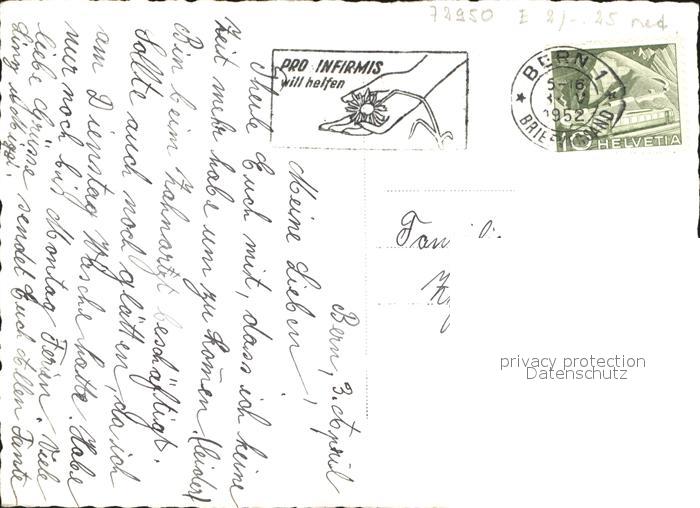 72950 E 2/-. 25 ned
PRO INFIRMIS
will helfen
BERN 1
1952
BRIEFVERSAND
10 HELVETIA
Bern, 3. April
Meine Lieben,
Theile Euch mit, dass ich keine
Zeit mehr habe um zu kom̄en (leider)
Bin beim Zahnarzt beschäftigt.
Sollte auch noch glätten, da ich
am Dienstag Wäsche hatte. Habe
nur noch bis Montag Ferien. Viele
liebe Grüsse sendet Euch Allen Tante
Fam
privacy protection
Datenschutz